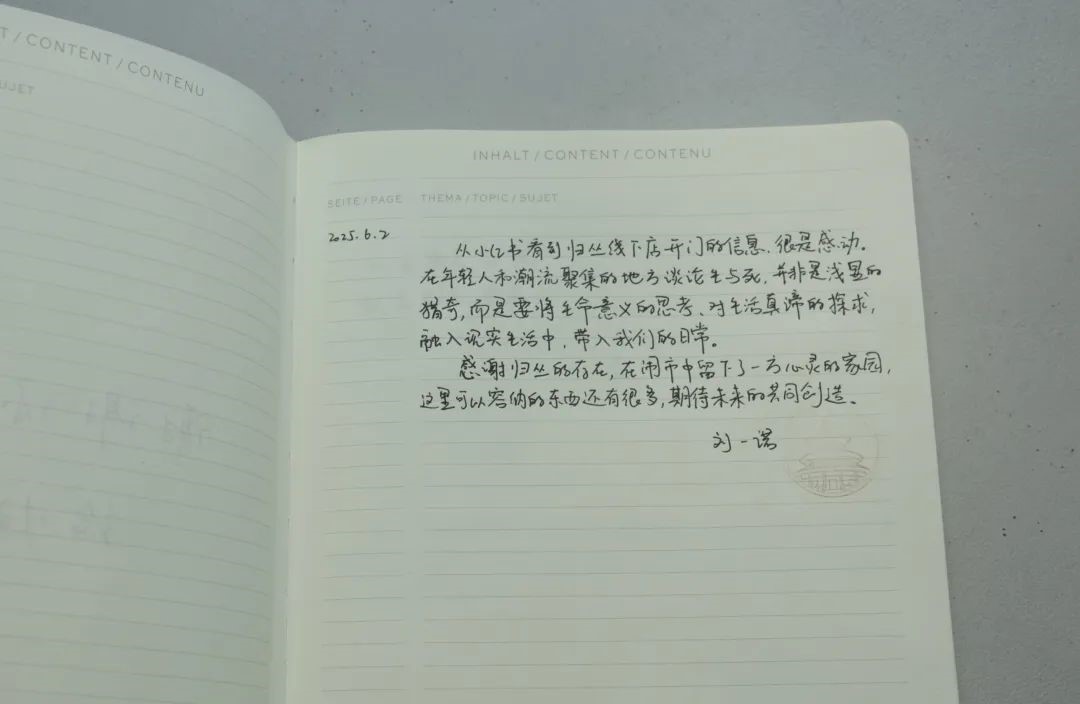 T / CONTENT / CONTENU
UJET
INHALT / CONTENT / CONTENU
SEITE / PAGE THEMA / TOPIC / SUJET
2025.6.2
从小红书看到归丛线下店开门的信息,很是感动。
在年轻人和潮流聚集的地方谈论生与死,并非是浅显的
猎奇,而是要将生命意义的思考、对生活真谛的探求,
融入现实生活中,带入我们的日常。
感谢归丛的存在,在闹市中留下了一方心灵的家园,
这里可以容纳的东西还有很多,期待未来的共同创造。
刘一诺